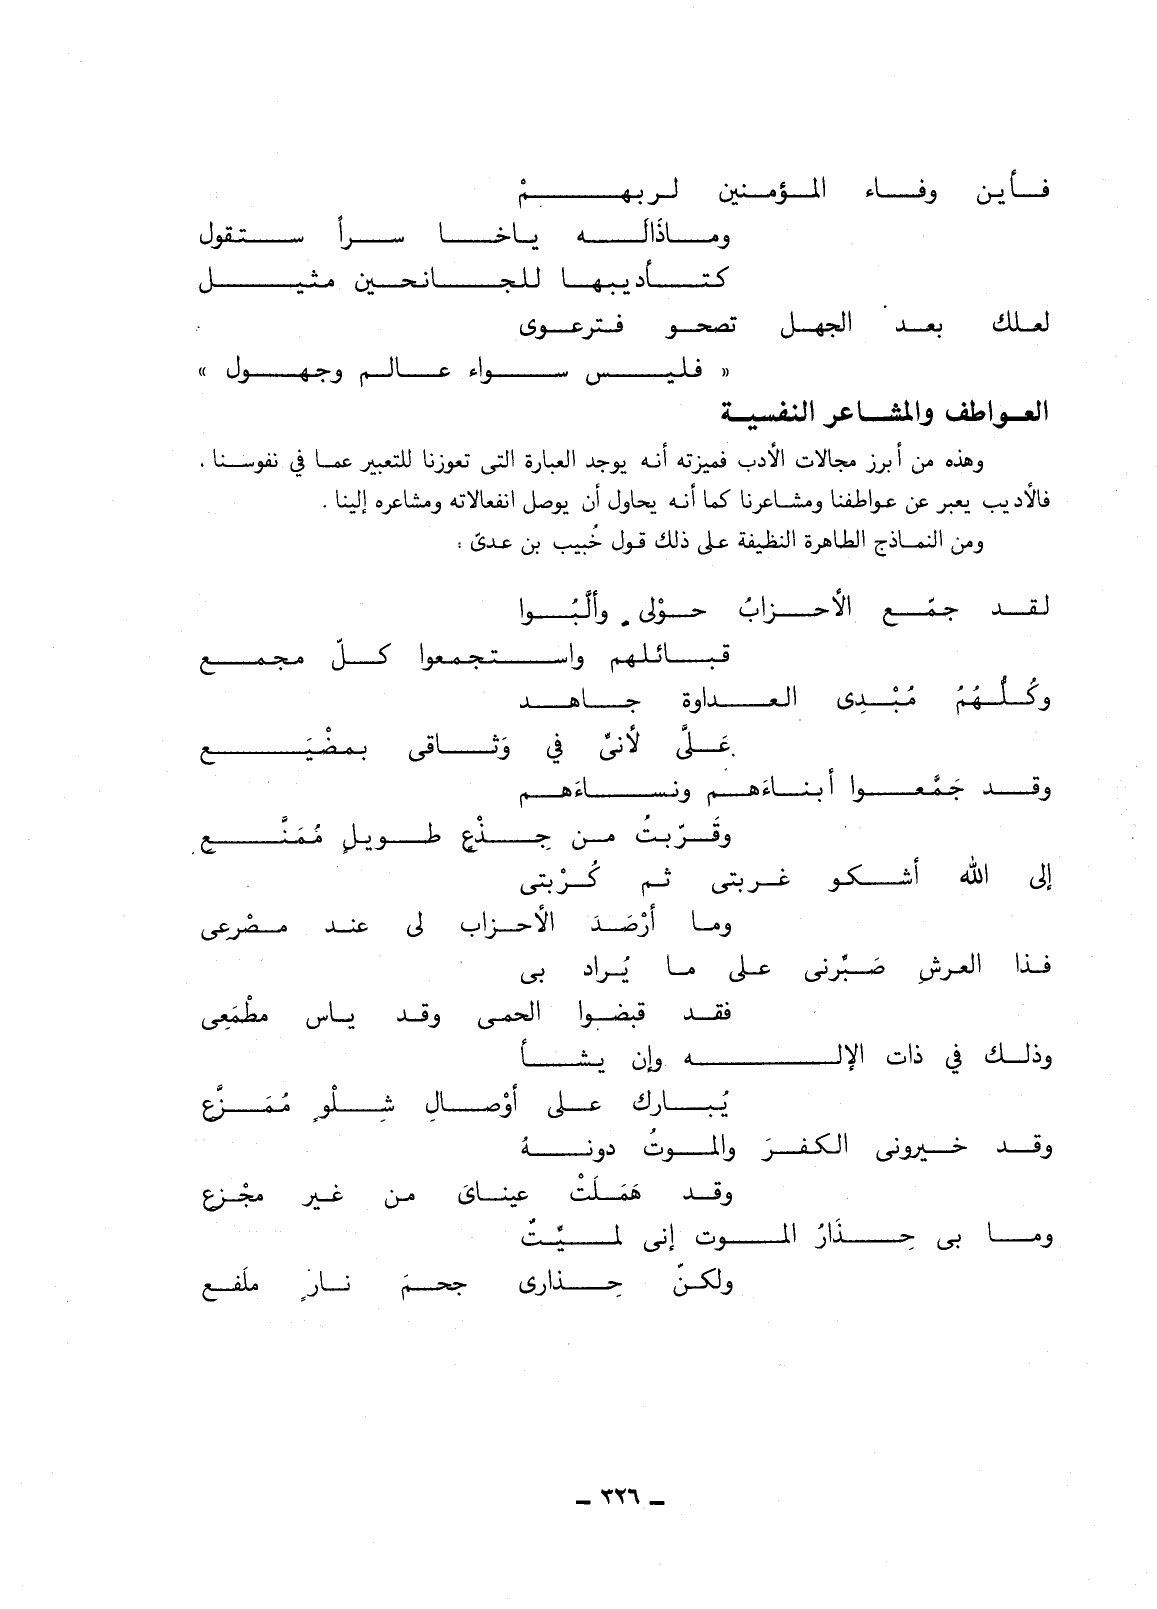 فأين وفاء المؤمنين لربهمْ
وماذَالَه ياخا سراً ستقول
كتأديبها للجانحين مثيل
لعلك بعد الجهل تصحو فترعوى
« فليس سواء عالم وجهول »
العواطف والمشاعر النفسية
وهذه من أبرز مجالات الأدب فميزته أنه يوجد العبارة التى تعوزنا للتعبير عما في نفوسنا .
فالأديب يعبر عن عواطفنا ومشاعرنا كما أنه يحاول أن يوصل انفعالاته ومشاعره إلينا .
ومن النماذج الطاهرة النظيفة على ذلك قول خُبيب بن عدىّ :
لقد جمّع الأحزابُ حوْلى وألَّبُوا
قبائلهم واستجمعوا كلّ مجمع
وكُلُّهُمُ مُبْدِى العداوة جاهد
علَّى لأنىِّ في وَثاقى بمضْيَع
وقد جَمَّعوا أبناءَهم ونساءَهم
وقَرّبتُ من جِذْعٍ طويلٍ مُمَنَّع
إلى الله أشكو غربتى ثم كُرْبتى
وما أرْصَدَ الأحزاب لى عند مصْرعِى
فذا العرشِ صَبِّرنى على ما يُراد بى
فقد قبضوا الحمى وقد ياس مطْمَعِى
وذلك في ذات الإله وإن يشأ
يُبارك على أوْصالِ شِلْوٍ مُمَزَّع
وقد خيرونى الكفرَ والموتُ دونهُ
وقد هَمَلَتْ عيناىَ من غير مجْزع
وما بى حِذَارُ الموت إنى لميِّتٌ
ولكنّ حِذارى جحمَ نارٍ ملَفع
ــ ٣٢٦ ــ